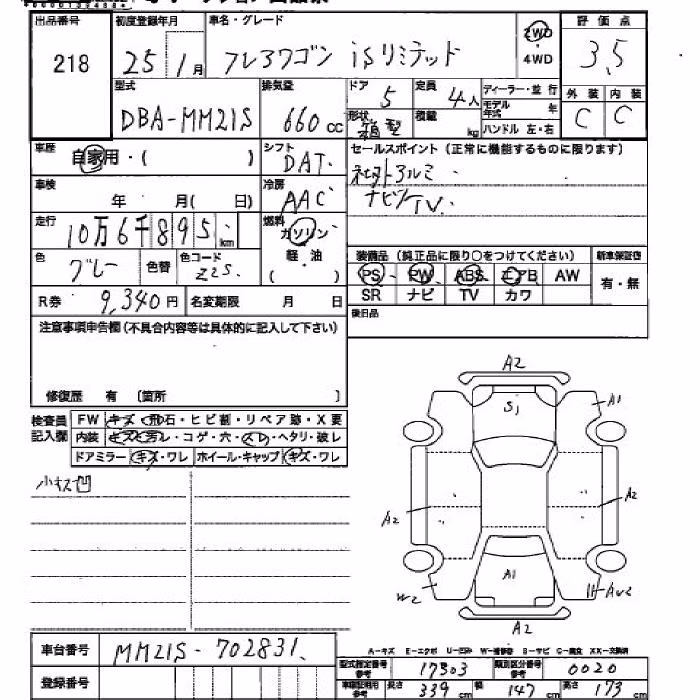 出品番号 初度登録年月 車名・グレード 評価点
218 25 1月 フレアワゴン isリミテッド 2WD・4WD 3.5
型式 排気量 ドア 定員 ディーラー・並行 外装 内装
DBA-MM21S 660cc 5 4人 モデル年式 年 C C
形状 箱型 積載 kg ハンドル 左・右
車歴 シフト セールスポイント(正常に機能するものに限ります)
自家用・( ) DAT 社外アルミ
車検 冷房 ナビ/TV
年 月( 日) AAC
走行 燃料
10万6千895km ガソリン・軽・油
色 色替 色コード ( ) 装備品(純正品に限り○をつけてください) 新車保証書
グレー ZZS PS PW ABS エアB AW 有・無
R券 9,340円 名変期限 月 日 SR ナビ TV カワ
注意事項申告欄(不具合内容等は具体的に記入して下さい) 後日品
修復歴 有 [箇所 ]
検査員記入欄 FW キズ・飛石・ヒビ割・リペア跡・X要
内装 キズ・汚レ・コゲ・穴・スレ・ヘタリ・破レ
ドアミラー キズ・ワレ ホイール・キャップ キズ・ワレ
小キズ凹
A2
S1 A1
A2 A2
A1
W2 AU2
A2
車台番号 MM21S-702831
A-キズ E-エクボ U-凹み W-補修跡 S-サビ C-腐食 XX-交換済
型式指定番号 17303 類別区分番号 0020
登録番号 車検証明用参考 長さ参考 339cm 幅 147cm 高さ参考 173cm